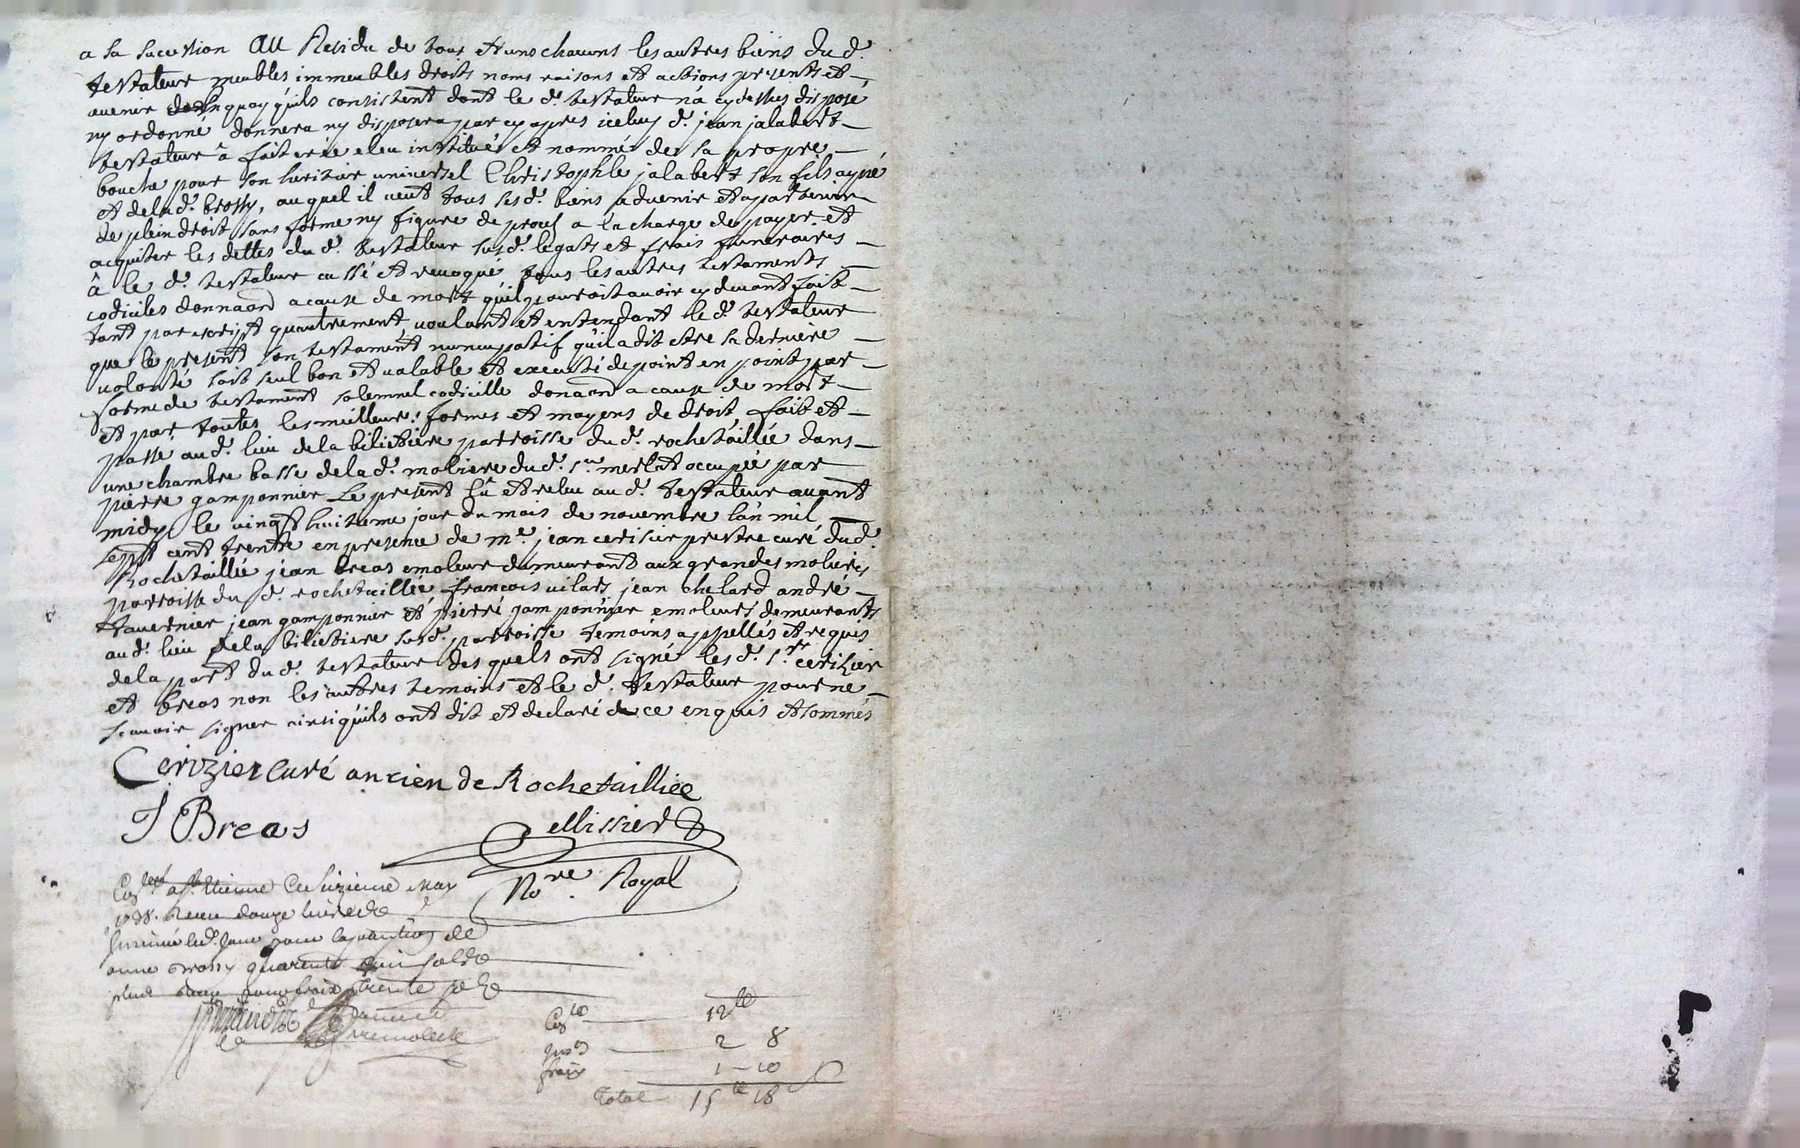 a sa sucession Au Residu de tous et uns chacuns les autres biens du d.
testateur meubles immeubles droits noms raisons et actions presents et
avenir en quoy quils consistent dont le d. testateur n'a cy dessus disposé
ny ordonné donnera ny disposera par cy apres iceluy d. jean jalabert
testateur â fait creé eleu institué et nommé de sa propre
bouche pour son heritier universel Christophle jalabert son fils ayné
et de la d. brossy, auquel il veut tous ses d. biens advenir et apartenir
de plein droit sans forme ny figure de procès a la charge de payer et
acquiter les dettes du d. testateur susd. legats et frais funeraires
â le d. testateur cassé et revoqué tous les autres testaments
codiciles donnaon a cause de mort qu'il pourroit avoir cy devant fait
tant par escript qu'autrement voulant et entendant le d. testateur
que le present son testament nuncupatif qu'il a dit estre sa derniere
volonté soit seul bon et valable et executé de point en point par
forme de testament solemnel codicille donaon a cause de mort
et par toutes les meilleures formes et moyens de droit, fait et
passé au d. lieu de la biliebiere parroisse du d. rochetaillée dans
une chambre basse de la d. moliere du d. sr. merlat occupée par
pierre gamponnier Le present lû et releu au d. testateur avant
midy le vingt huitieme jour du mois de novembre l'an mil
sept cent trente en presence de me. jean cerisier prestre curé du d.
Rochetaillée jean breas emoleur demeurant aux grandes molieres
parroisse du d. rochetaillée françois vilars jean chelard andré
tavernier jean gamponnier et pierre gamponnier emoleurs demeurants
au d. lieu de la biliebiere susd. parroisse temoins appellés et requis
de la part du d. testateur des quels ont signé les d. srs. cerizier
et breas non les autres temoins et le d. testateur pour ne
scavoir signer ainsi qu'ils ont dit et declaré de ce enquis et sommés
Cerizier Curé ancien de Rochetaillieé
J Breas
ellissier
Nore. Royal
a St. Etienne Le sizieme may
Receu douze livres
pour
anne brossy quarente huit solds
plus pour frais trente
12 tt
2 8
frais 1 - 10
Total 15 tt 18